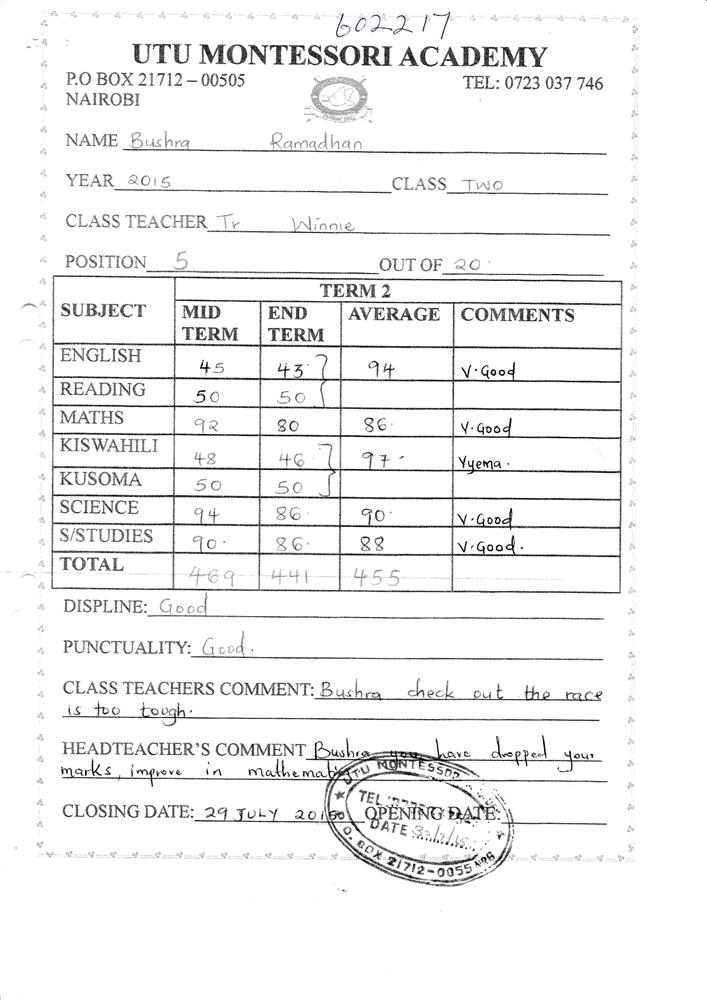 602217
UTU MONTESSORI ACADEMY
P.O BOX 21712 – 00505 TEL: 0723 037 746
NAIROBI
NAME Bushra Ramadhan
YEAR 2015 CLASS TWO
CLASS TEACHER Tr Winnie
POSITION 5 OUT OF 20
TERM 2
SUBJECT MID TERM END TERM AVERAGE COMMENTS
ENGLISH 45 43 94 V.Good
READING 50 50
MATHS 92 80 86 V.Good
KISWAHILI 48 46 97 Vyema.
KUSOMA 50 50
SCIENCE 94 86 90 V.Good
S/STUDIES 90 86 88 V.Good.
TOTAL 469 441 455
DISPLINE: Good
PUNCTUALITY: Good.
CLASS TEACHERS COMMENT: Bushra check out the race
is too tough.
HEADTEACHER'S COMMENT Bushra you have dropped your
marks, improve in
CLOSING DATE: 29 JULY OPENING DATE:
UTU MONTESSOR
TEL
DATE
BOX 21712-0055 NRB